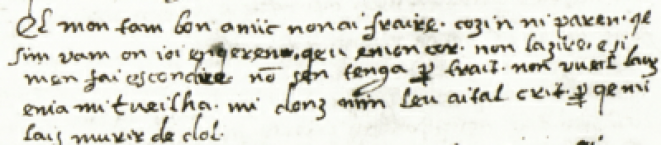 El mon tam bon amic non ai fraire. cozin ni paren. qe
sim vam on ioi enqeren. qeu en mon cor. non lazire. e si
men fai escondire. nō sen tenga p̱ trait. non vueil lauz
enia mi tueilha. mi donz nim leu aital crit. p̱ qe mi
lais murir de dol.